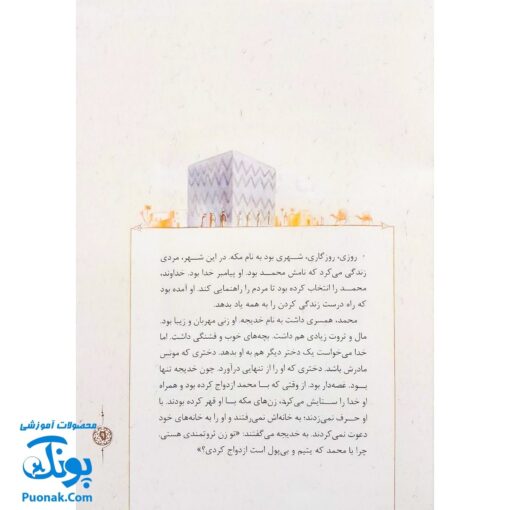 روزی، روزگاری، شهری بود به نام مکه. در این شهر، مردی
زندگی می‌کرد که نامش محمد بود. او پیامبر خدا بود. خداوند،
محمد را انتخاب کرده بود تا مردم را راهنمایی کند. او آمده بود
که راه درست زندگی کردن را به همه یاد بدهد.
محمد، همسری داشت به نام خدیجه. او زنی مهربان و زیبا بود.
مال و ثروت زیادی هم داشت. بچه‌های خوب و قشنگی داشت. اما
خدا می‌خواست یک دختر دیگر هم به او بدهد. دختری که مونس
مادرش باشد. دختری که او را از تنهایی درآورد. چون خدیجه تنها
بود. غصه‌دار بود. از وقتی که با محمد ازدواج کرده بود و همراه
او خدا را ستایش می‌کرد، زن‌های مکه با او قهر کرده بودند. با
او حرف نمی‌زدند؛ به خانه‌اش نمی‌رفتند و او را به خانه‌های خود
دعوت نمی‌کردند. به خدیجه می‌گفتند: «تو زن ثروتمندی هستی.
چرا با محمد که یتیم و بی‌پول است ازدواج کردی؟»
محصولات آموزشی
پونک
Puonak.Com